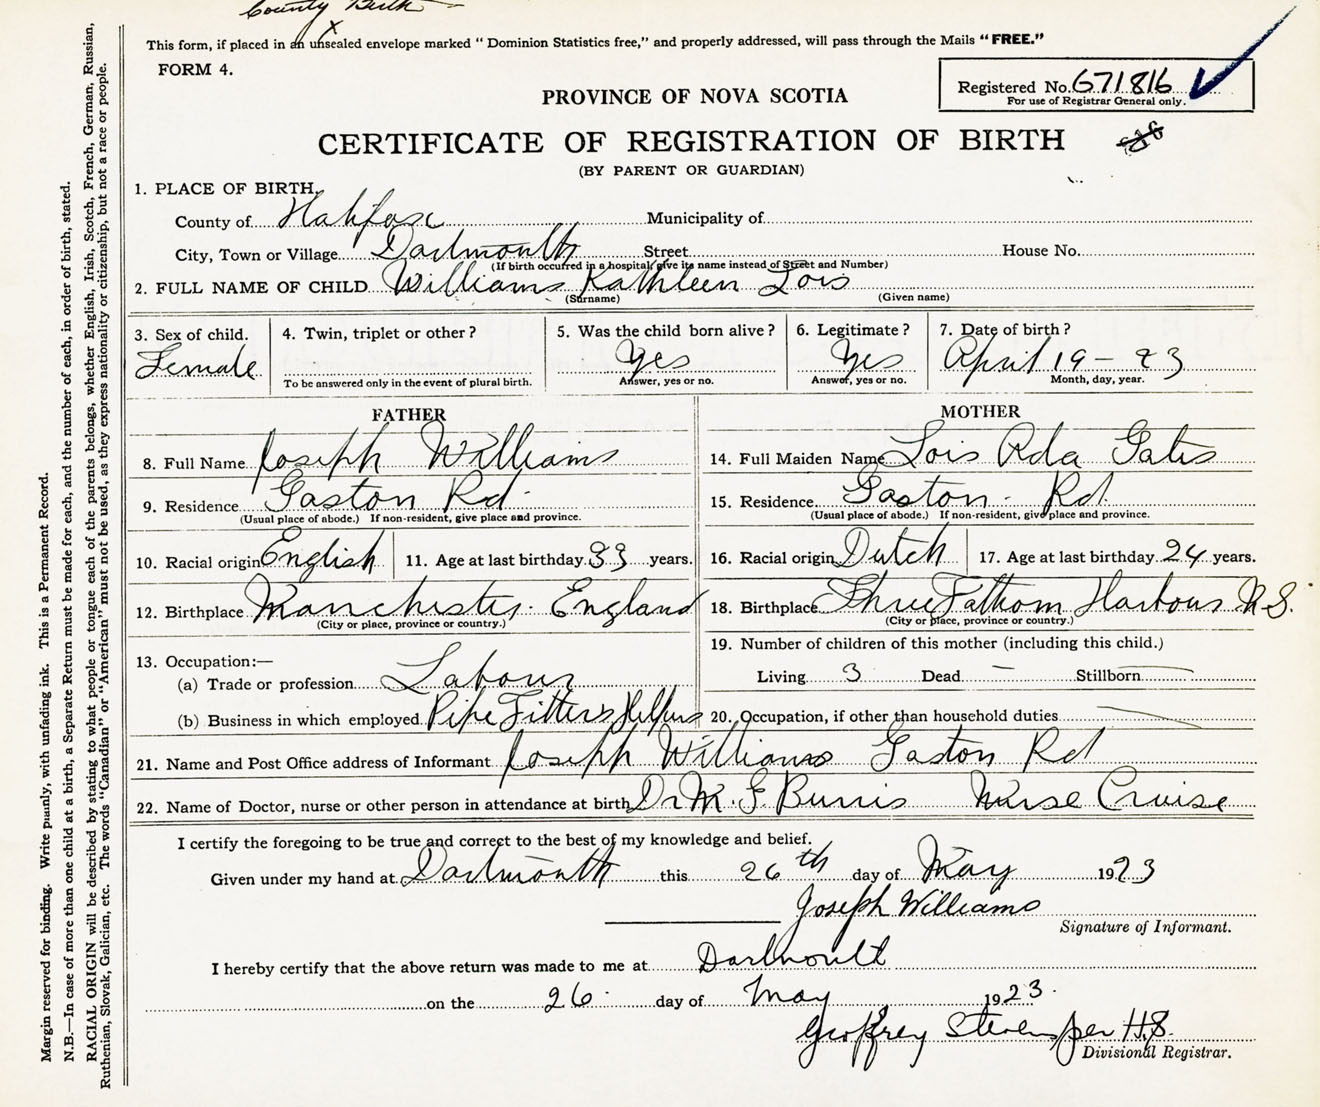 County Birth
This form, if placed in an unsealed envelope marked “ Dominion Statistics free,” and properly addressed, will pass through the Mails “FREE.”
FORM 4.
Registered No. 671816
For use of Registrar General only.
PROVINCE OF NOVA SCOTIA
CERTIFICATE OF REGISTRATION OF BIRTH
(BY PARENT OR GUARDIAN)
1. PLACE OF BIRTH.
County of Halifax Municipality of
City, Town or Village Dartmouth Street House No.
(If birth occurred in a hospital give its name instead of Street and Number)
2. FULL NAME OF CHILD Williams Kathleen Lois
(Surname) (Given name)
3. Sex of child. 4. Twin, triplet or other? 5. Was the child born alive? 6. Legitimate? 7. Date of birth?
Female Yes Yes April 19 - 23
To be answered only in the event of plural birth. Answer, yes or no. Answer, yes or no. Month, day, year.
FATHER MOTHER
8. Full Name Joseph Williams 14. Full Maiden Name Lois Rda Gates
9. Residence Gaston Rd. 15. Residence Gaston Rd.
(Usual place of abode.) If non-resident, give place and province. (Usual place of abode.) If non-resident, give place and province.
10. Racial origin English 11. Age at last birthday 33 years. 16. Racial origin Dutch 17. Age at last birthday 24 years.
12. Birthplace Manchester England 18. Birthplace Three Fathom Harbour N.S.
(City or place, province or country.) (City or place, province or country.)
19. Number of children of this mother (including this child.)
13. Occupation:—
Living 3 Dead — Stillborn —
(a) Trade or profession Labour
(b) Business in which employed Pipe Fitters Helpers 20. Occupation, if other than household duties —
21. Name and Post Office address of Informant Joseph Williams Gaston Rd
22. Name of Doctor, nurse or other person in attendance at birth Dr M. G. Burris Nurse Cruise
I certify the foregoing to be true and correct to the best of my knowledge and belief.
Given under my hand at Dartmouth this 26th day of May 1923
Joseph Williams
Signature of Informant.
I hereby certify that the above return was made to me at Dartmouth
on the 26 day of May 1923.
Geoffrey Stevens per H.S.
Divisional Registrar.
Margin reserved for binding. Write plainly, with unfading ink. This is a Permanent Record.
N.B.—In case of more than one child at a birth, a Separate Return must be made for each, and the number of each, in order of birth, stated.
RACIAL ORIGIN will be described by stating to what people or tongue each of the parents belongs, whether English, Irish, Scotch, French, German, Russian,
Ruthenian, Slovak, Galician, etc. The words “Canadian” or “American” must not be used, as they express nationality or citizenship, but not a race or people.